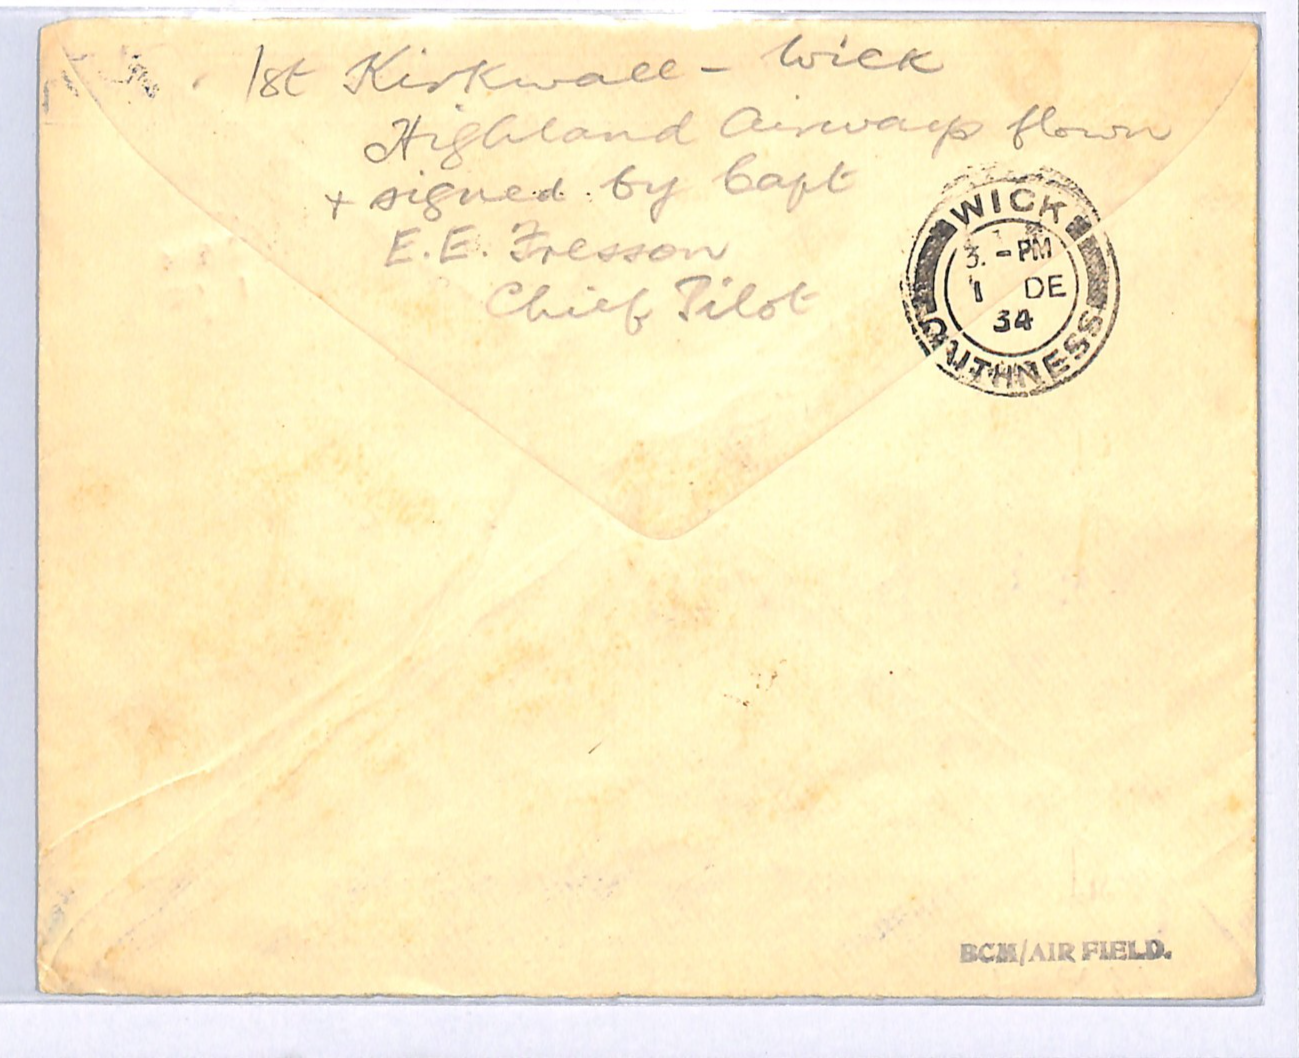 1st Kirkwall - Wick
Highland Airways flown
+ signed by Capt
E.E. Fresson
Chief Pilot
WICK
3. - PM
1 DE
34
CAITHNESS
BCM/AIR FIELD.